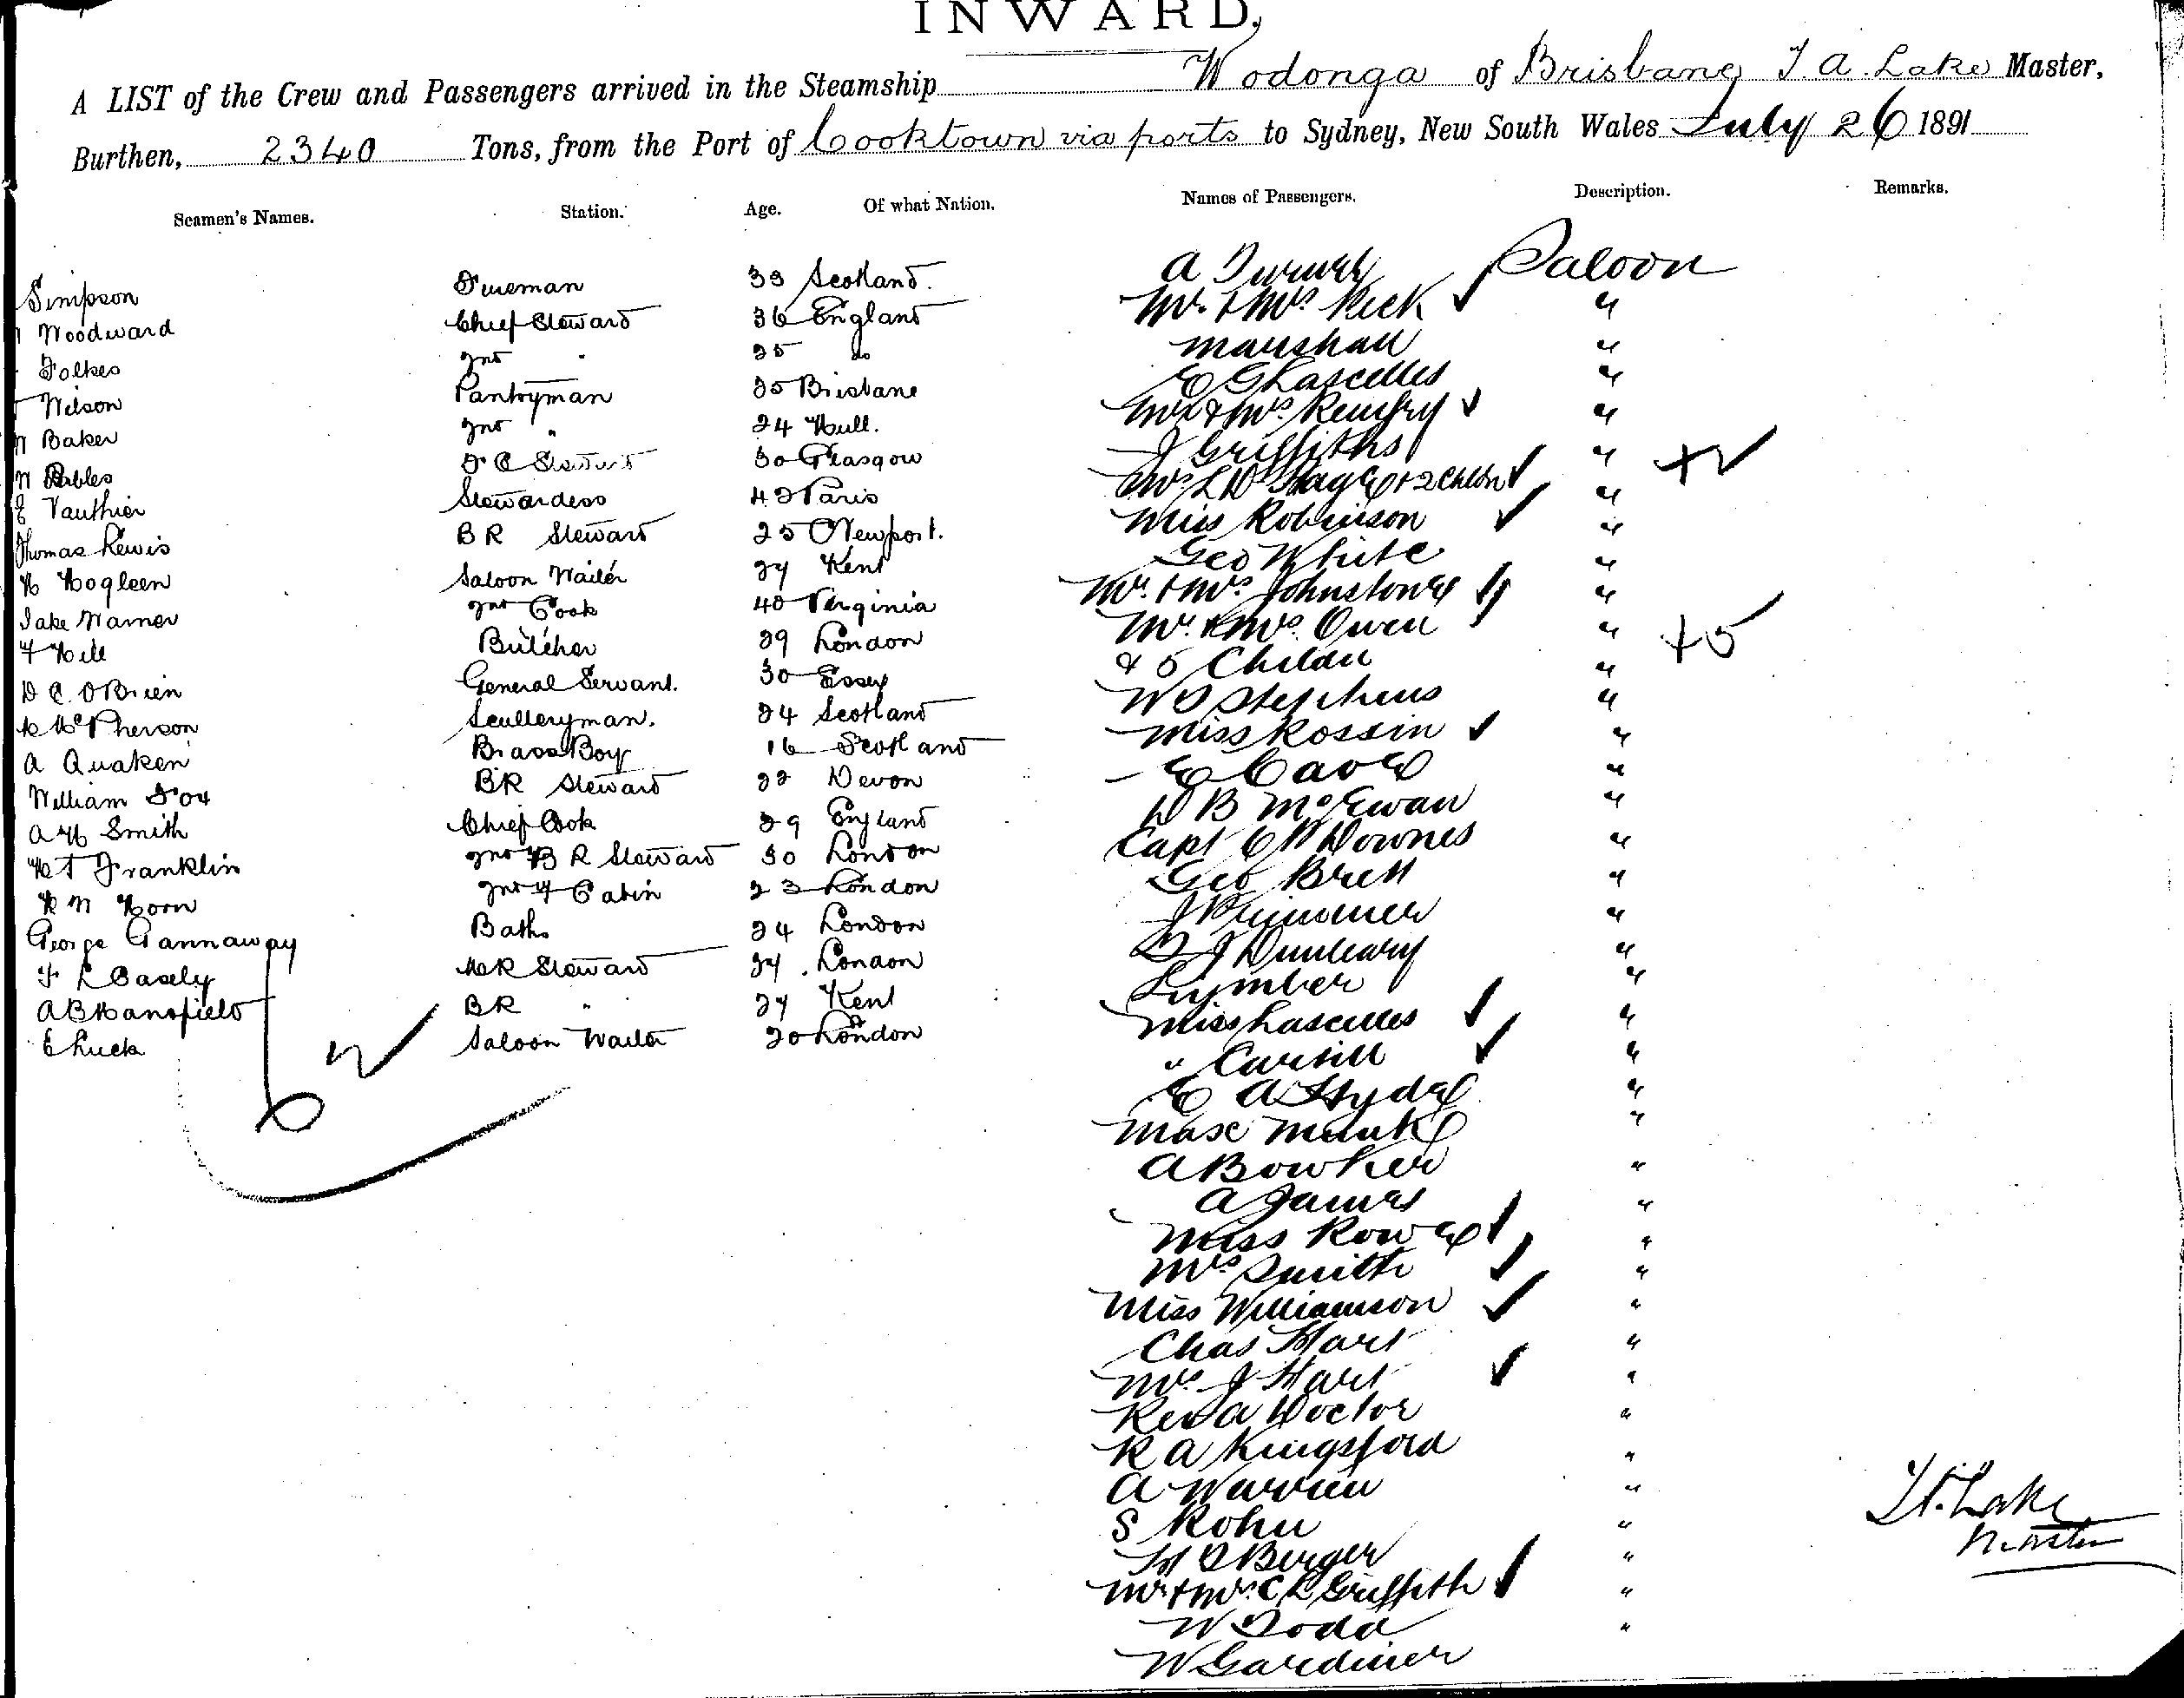 INWARD,
A LIST of the Crew and Passengers arrived in the Steamship Wodonga of Brisbane T. A. Lake Master,
Burthen, 2340 Tons, from the Port of Cooktown via ports to Sydney, New South Wales July 26 1891
Seamen's Names. Station. Age. Of what Nation. Names of Passengers. Description. Remarks.
Simpson Fireman 33 Scotland. A Saloon
Woodward Chief Steward 36 England Mr. & Mrs Peck ✓ "
Folkes 2nd " 25 do Marshall "
Wilson Pantryman 35 Brisbane E G Lascelles "
Baker 2nd " 24 Hull. Mr & Mrs. ✓ "
30 Glasgow J Griffiths " + ✓
E Vauthier Stewardess 42 Paris Mrs & 2 Chldn ✓ "
Thomas Lewis BR Steward 25 Newport. Miss Robinson ✓ "
H Hogleen Saloon Waiter 27 Kent Geo White "
Jake Warner 2nd Cook 40 Virginia Mr. & Mrs. Johnstone ✓ "
F Hill Butcher 29 London Mr. & Mrs. Owen " + 5
D C. O'Brien General Servant. 30 Essex & 5 Childn "
McPherson Sculleryman. 24 Scotland W O Stephens "
A Quaken Brass Boy 16 Scotland Miss Rossin ✓ "
William Fox BR Steward 22 Devon E Cave "
A H Smith Chief Cook 29 England D B McEwan "
H T Franklin 2nd B R Steward 30 London Capt Downes "
H M Horn 2nd F Cabin 23 London Geo Brett "
George Gannaway Baths 24 London J "
F L Casely MR Steward 27. London J Dunleavy "
A B Mansfield BR " 27 Kent Lymber "
E Luck Saloon Waiter 20 London Miss Lascelles ✓ "
" ✓ "
E A Hyde "
"
A Bowker "
A James "
Miss Rowe ✓ "
Mrs Smith ✓ "
Miss Williamson ✓ "
Chas Hart "
Mrs. J Hart ✓ "
Rev A Doctor "
R A Kingsford "
A Warren "
S Kohn "
Berger "
Mr & Mrs. C L Griffith ✓ "
W Dodd "
W Gardiner
T A. Lake
Master